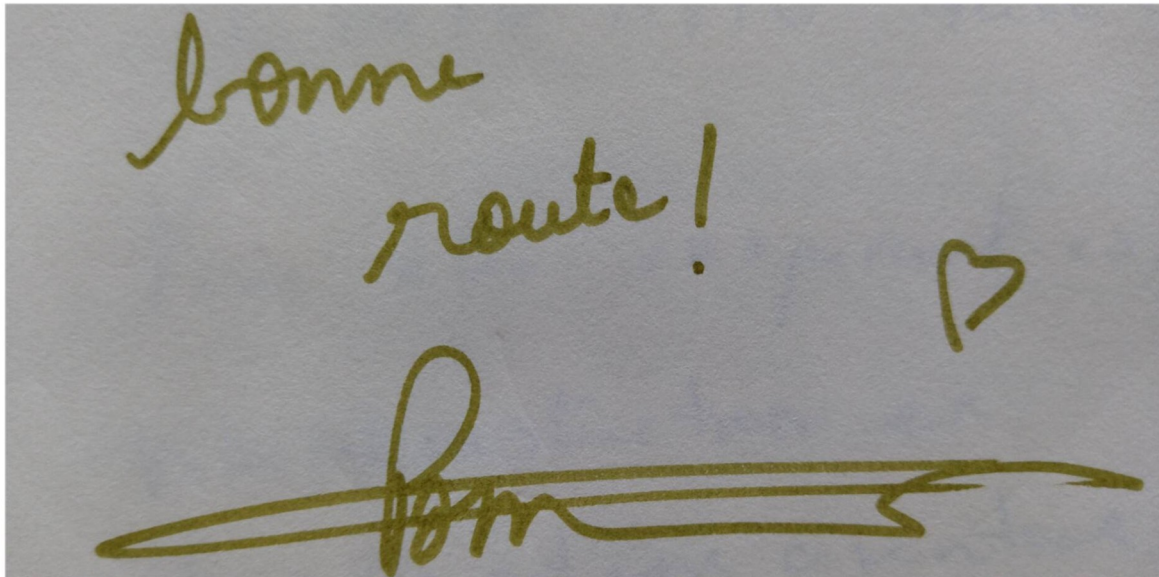 bonne
route!